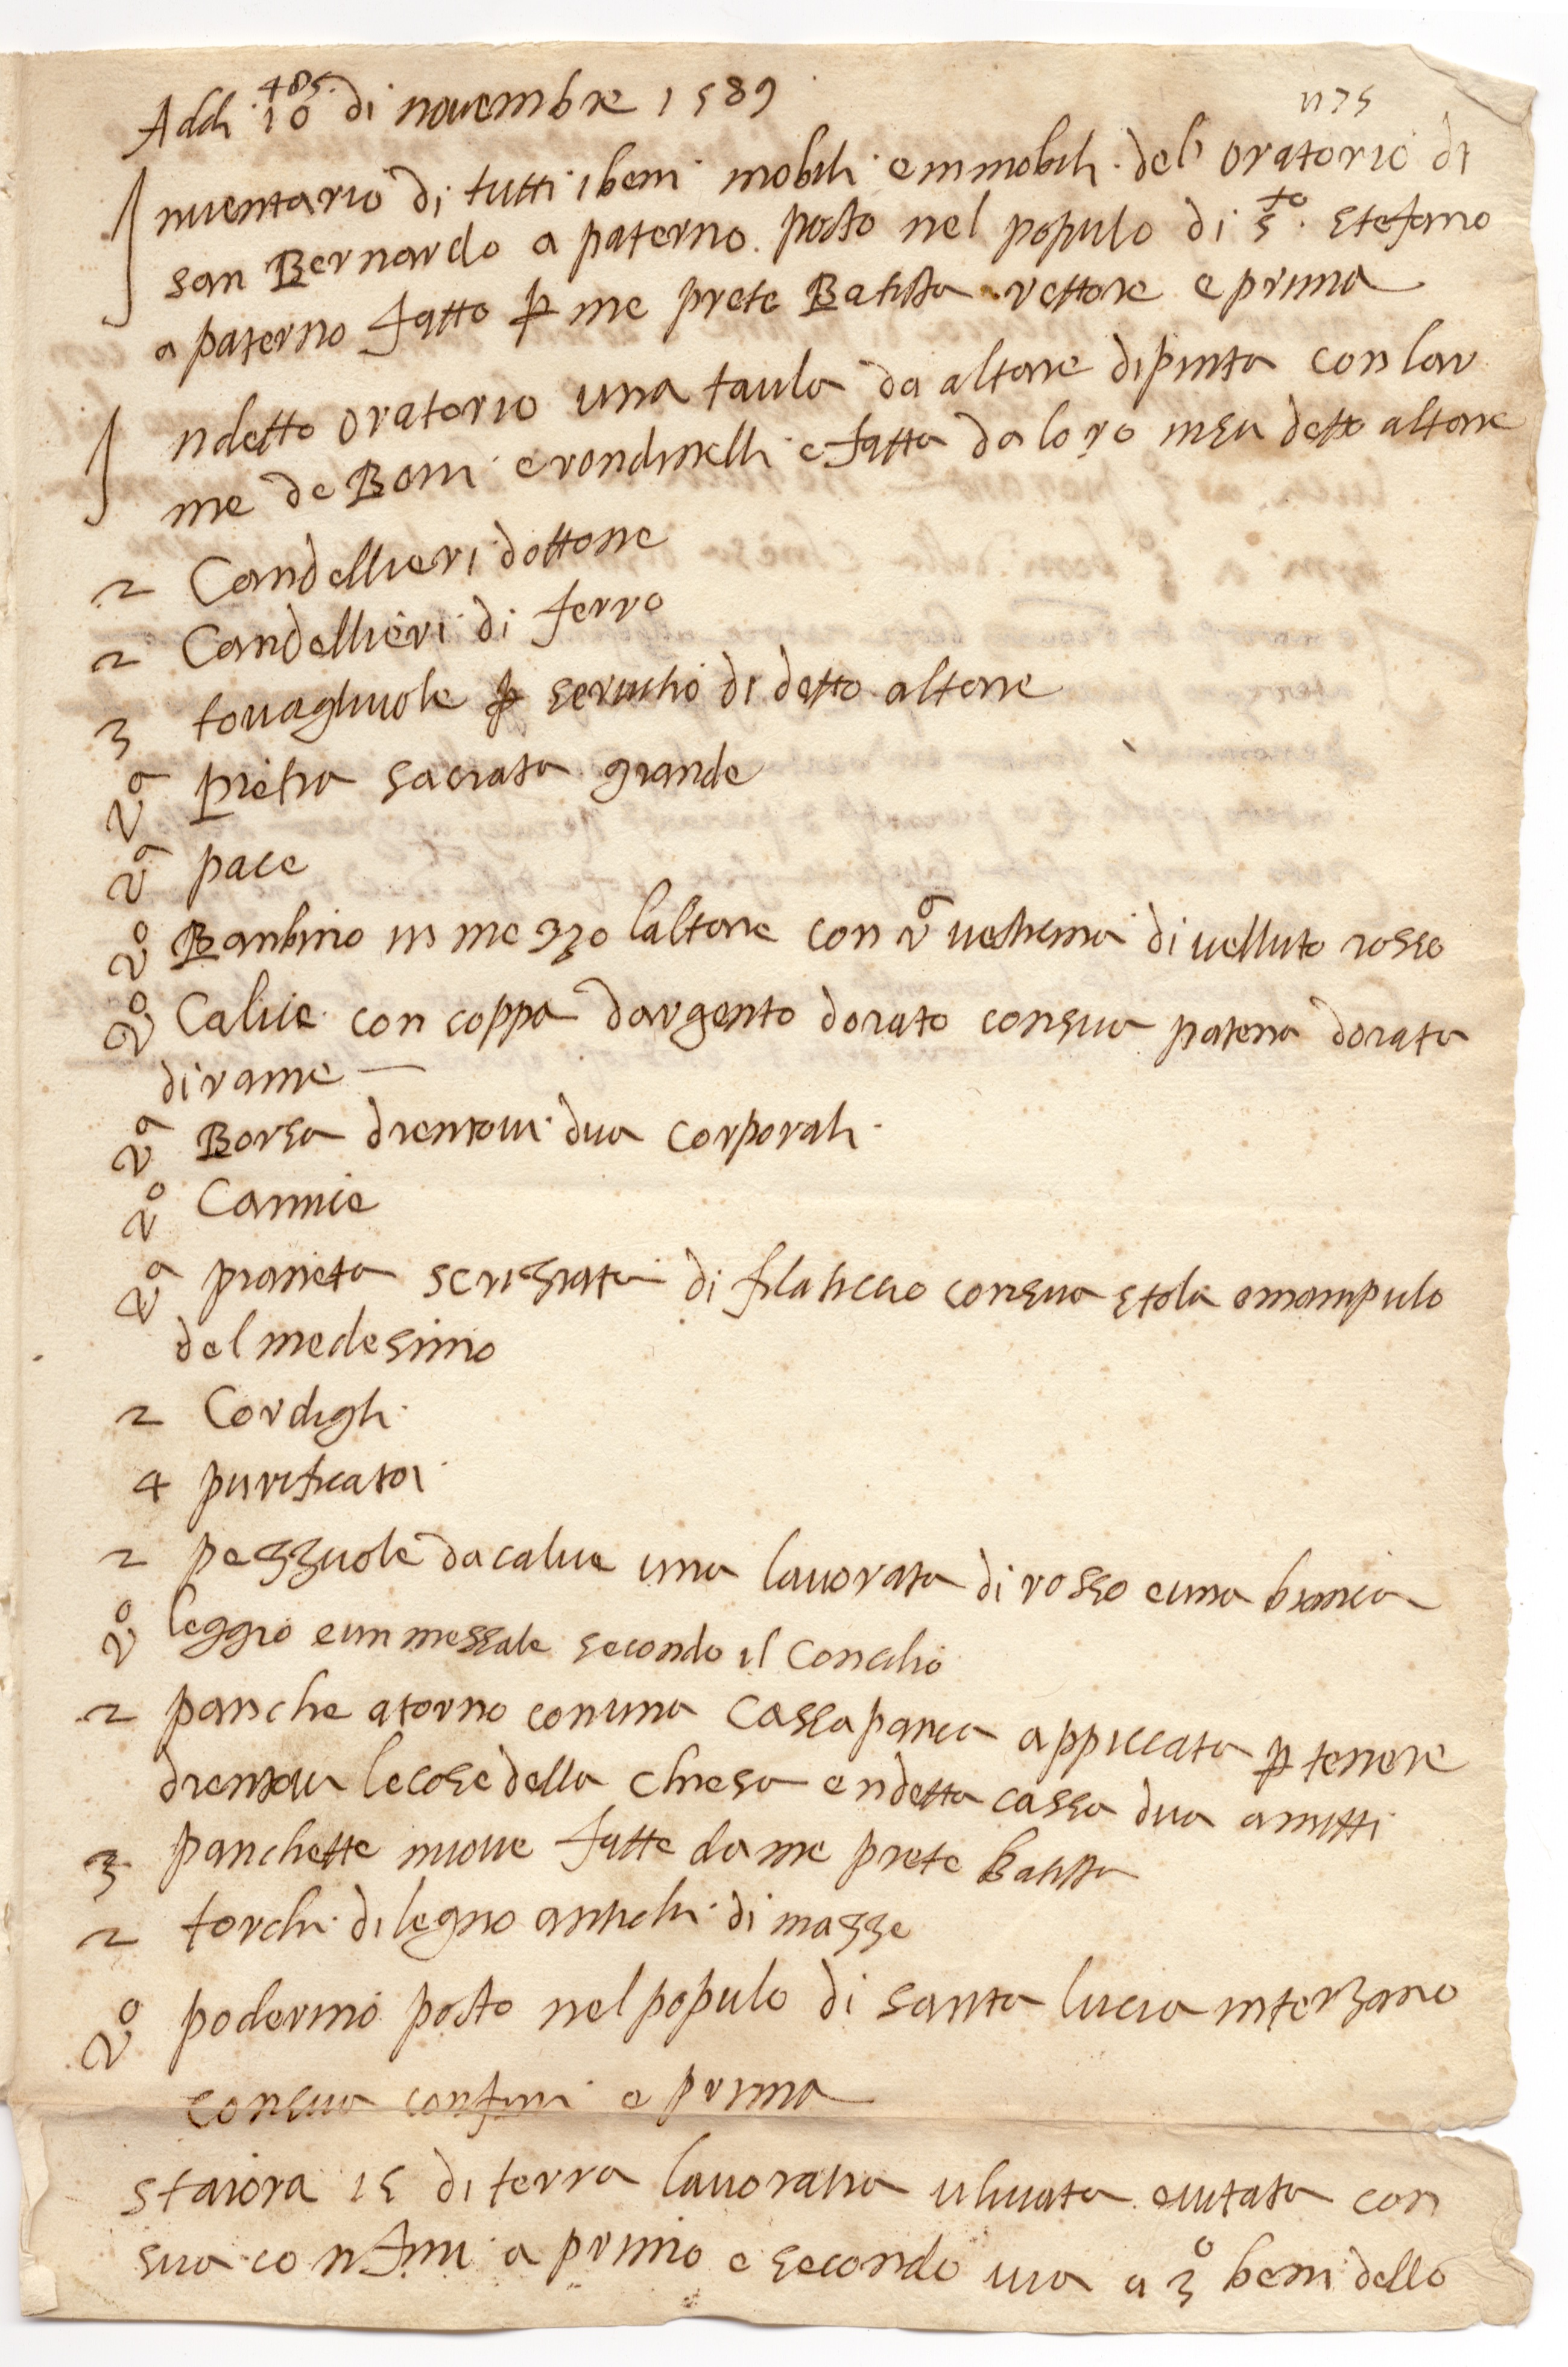 485.
Addi 10 di novembre 1589
1175
Inventario di tutti i beni mobili e inmobili del oratorio di
san Bernardo a paterno posto nel populo di s.to stefano
a paterno fatto p me prete Batista rettore e prima
Indetto oratorio una taula da altare dipinta con lar
me de Boni e rondinelli e fatta da loro insu detto altare
2 Candellieri dottone
2 Candellieri di ferro
3 tovagliuole p servitio di detto altare
va pietra sacrata grande
va pace
vo Banbino in mezzo laltare con va vesticina di velluto rosso
vo Calice con coppa dargento dorato consua patena dorata
di rame —
va Borsa drentovi dua corporali
vo Camice
va pianeta scrisziata di filaticcio consua stola e manipulo
del medesimo
2 Cordigli
4 purificatoi
2 pezzuole da calice una lavorata di rosso e una biancia
vo leggio e un messale secondo il Concilio
2 panche atorno con una Cassapanca appiccata p tenere
drentovi le cose della chiesa e ndetta cassa dua amitti
3 panchette nuove fatte da me prete batista
2 torchi di legno antichi di mazze
vo poderino posto nel populo di santa lucia in terzano
consua confini e prima
staiora 15 di terra lavoratia ulivata e vitata con
sua confini a primo e secondo via a 3o beni dello